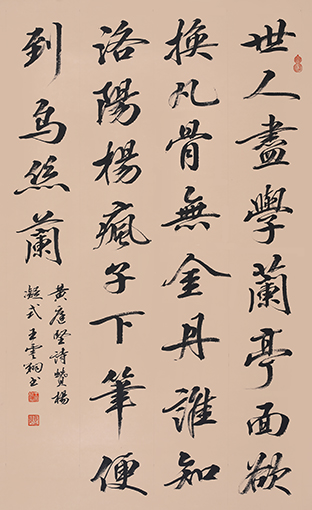 世人盡學蘭亭面欲
換凡骨無金丹誰知
洛陽楊瘋子下筆便
到烏絲蘭
黃庭堅詩贊楊
凝式王雲翔書